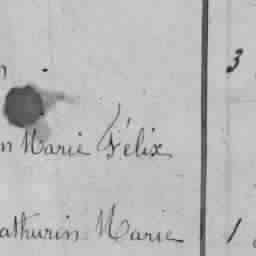 n . 3
n Marie Félix
athurin Marie 1